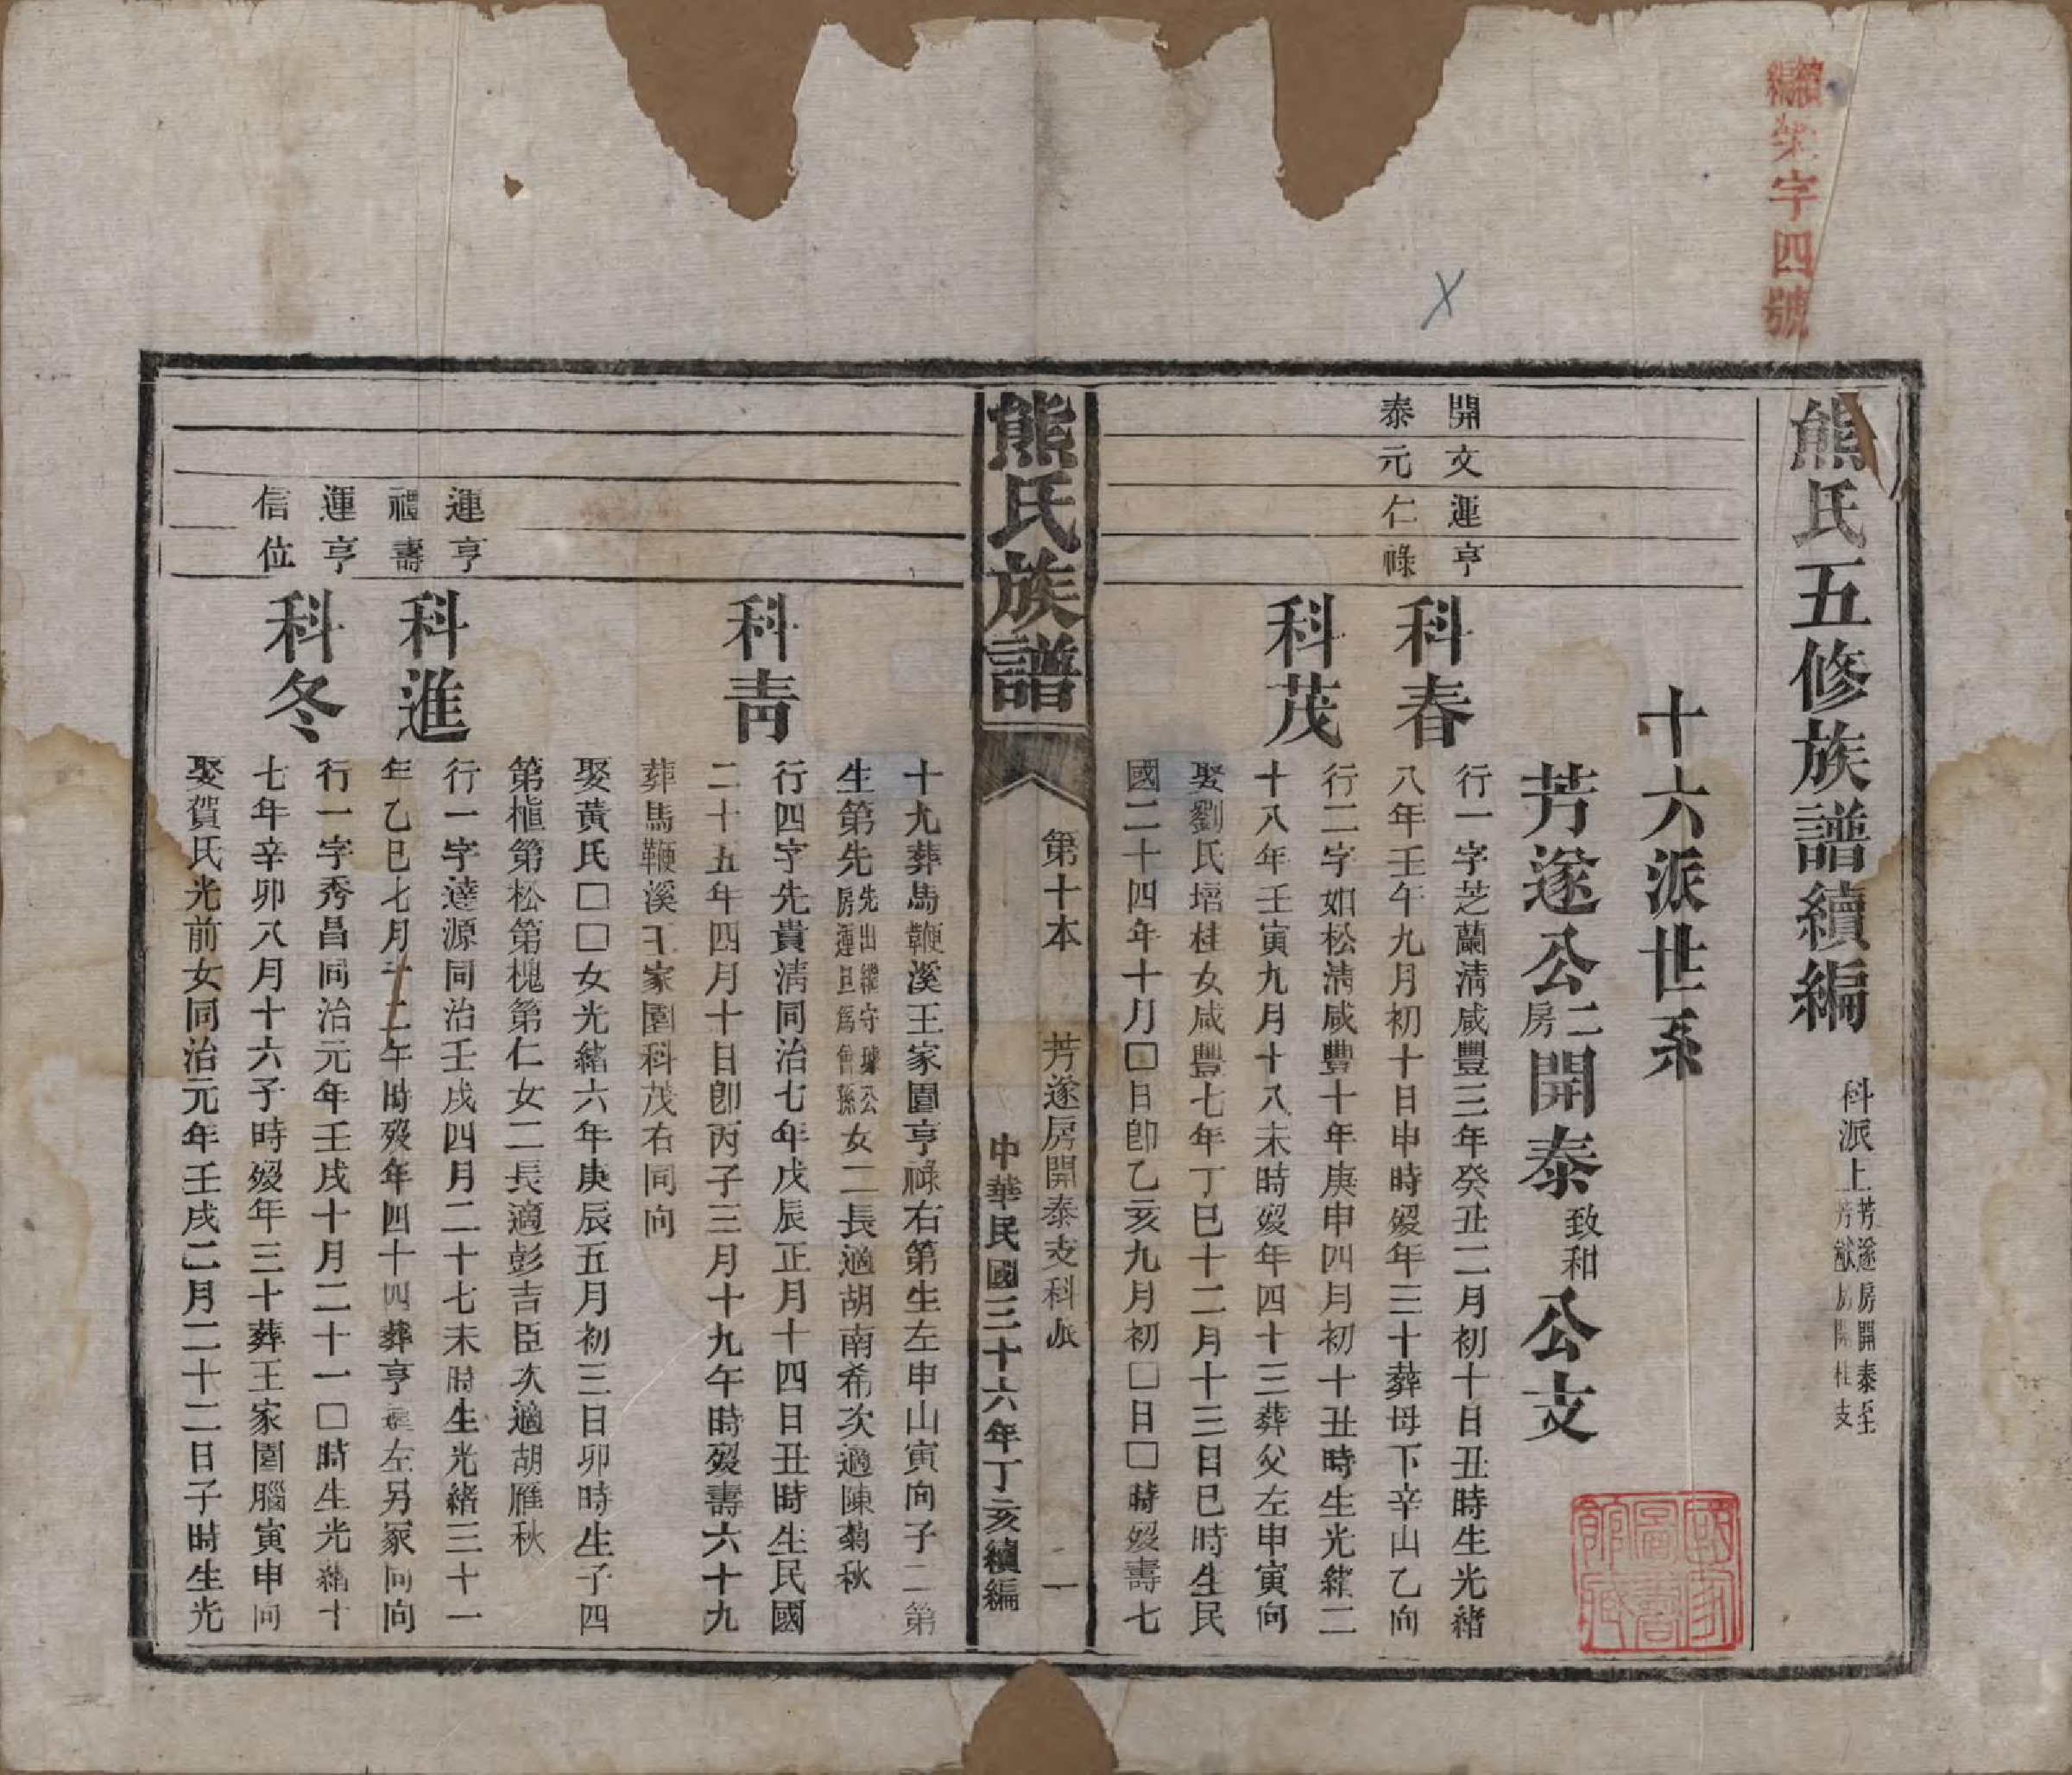 續編柴字四號
熊氏五修族譜續編 科派上 芳遂房開泰至芳猷房開柱支
十六派世系
芳遂公二房開泰致和公支
開文運亨
泰元仁祿
科春
行一字芝蘭清咸豐三年癸丑二月初十日丑時生光緒
八年壬午九月初十日申時歿年三十葬母下辛山乙向
科茂
行二字如松清咸豐十年庚申四月初十丑時生光緒二
十八年壬寅九月十八未時歿年四十三葬父左申寅向
娶劉氏培桂女咸豐七年丁巳十二月十三日巳時生民
國二十四年十月□日卽乙亥九月初□日□時歿壽七
熊氏族譜
第十本
芳遂房開泰支科派
一
中華民國三十六年丁亥續編
十九葬馬鞭溪王家園亨祿右第生左申山寅向子二第
生第先先出繼守璩公房運旦爲曾孫女二長適胡南希次適陳菊秋
科青
行四字先貴清同治七年戊辰正月十四日丑時生民國
二十五年四月十日卽丙子三月十九午時歿壽六十九
葬馬鞭溪王家園科茂右同向
娶黃氏□□女光緒六年庚辰五月初三日卯時生子四
第植第松第槐第仁女二長適彭吉臣次適胡雁秋
運亨
禮壽
科進
行一字達源同治壬戌四月二十七未時生光緒三十一
年乙巳七月十二午時歿年四十四葬亨左另冢同向
運亨
信位
科冬
行一字秀昌同治元年壬戌十月二十一□時生光緒十
七年辛卯八月十六子時歿年三十葬王家園腦寅申向
娶賀氏光前女同治元年壬戌二月二十二日子時生光
國家圖書館藏